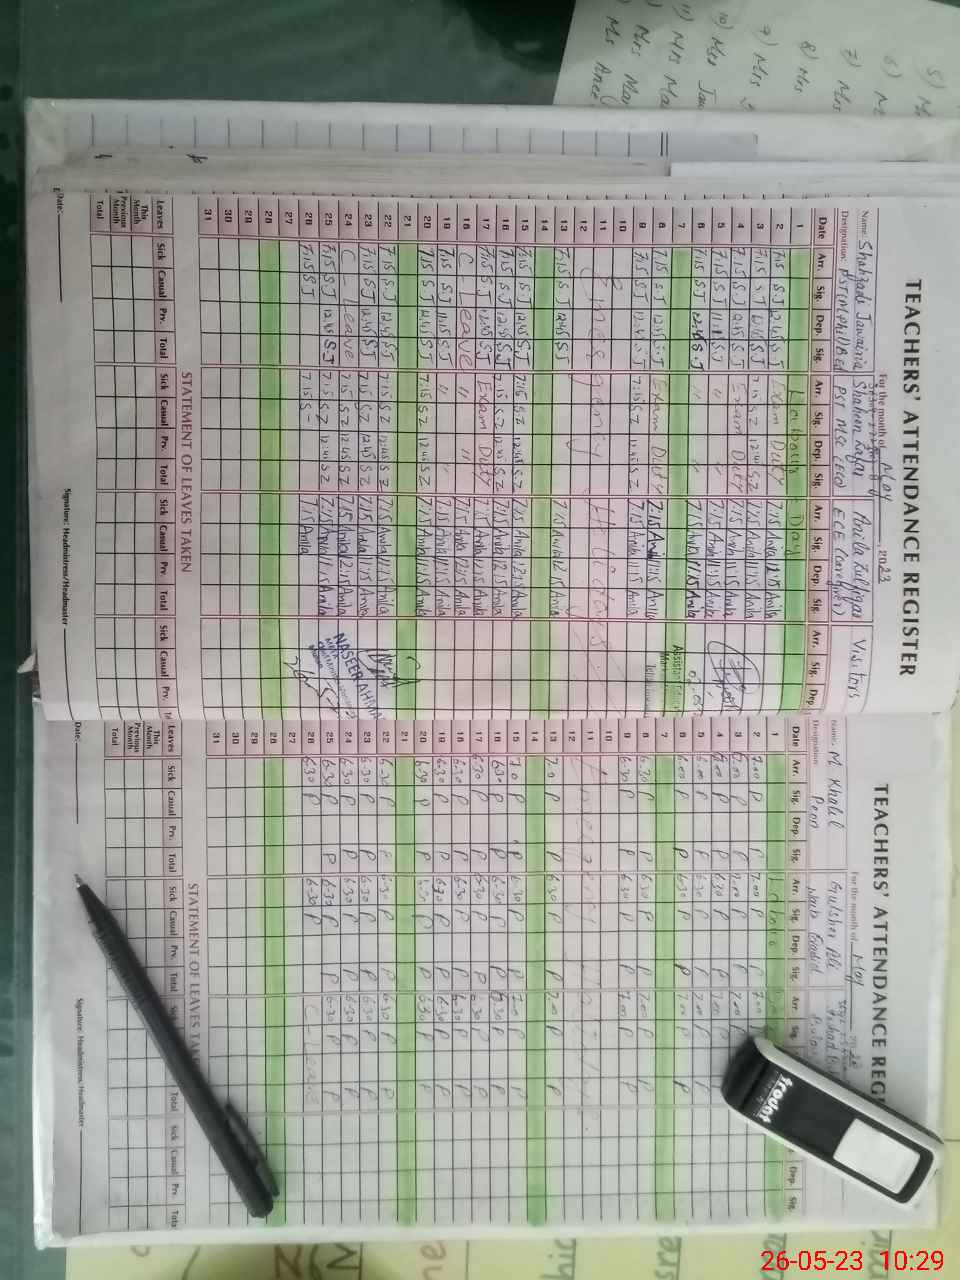 TEACHERS' ATTENDANCE REGISTER
For the month of May, 2023
Name: Shahzadi Jawairia Shaheen Zafar Anila Zulfiqar Visitors
Designation: PST (M.Phil) B.Ed PST MSc (Eco) ECE (Caregiver)
Date Arr. Sig. Dep. Sig. Arr. Sig. Dep. Sig. Arr. Sig. Dep. Sig. Arr. Sig. Dep.
1 Labour Day
2 7:15 S.J 12:45 S.J Exam Duty 7:15 Anila 12:15 Anila
3 7:15 S.J 12:45 S.J 7:15 S.Z 12:45 S.Z 7:15 Anila 11:15 Anila
4 7:15 S.J 12:45 S.J Exam Duty 7:15 Anila 11:15 Anila
5 7:15 S.J 11:15 S.J " " 7:15 Anila 11:15 Anila
6 7:15 S.J 12:45 S.J " " 7:15 Anila 11:15 Anila
7
8 7:15 S.J 12:45 S.J Exam Duty 7:15 Anila 11:15 Anila
9 7:15 S.J 12:45 S.J 7:15 S.Z 12:45 S.Z 7:15 Anila 11:15 Anila
10
11 Emergency Holidays
12
13 7:15 S.J 12:45 S.J 7:15 Anila 12:15 Anila
14
15 7:15 S.J 12:45 S.J 7:15 S.Z 12:45 S.Z 7:15 Anila 12:15 Anila
16 7:15 S.J 12:45 S.J 7:15 S.Z 12:45 S.Z 7:15 Anila 12:15 Anila
17 7:15 S.J 12:45 S.J Exam Duty 7:15 Anila 12:15 Anila
18 C-Leave " " 7:15 Anila 12:15 Anila
19 7:15 S.J 11:15 S.J " " 7:15 Anila 11:15 Anila
20 7:15 S.J 12:45 S.J 7:15 S.Z 12:45 S.Z 7:15 Anila 11:15 Anila
21
22 7:15 S.J 12:45 S.J 7:15 S.Z 12:45 S.Z 7:15 Anila 11:15 Anila
23 7:15 S.J 12:45 S.J 7:15 S.Z 12:45 S.Z 7:15 Anila 11:15 Anila
24 C-Leave 7:15 S.Z 12:45 S.Z 7:15 Anila 12:15 Anila
NASEER AHMAD
25 7:15 S.J 12:45 S.J 7:15 S.Z 12:45 S.Z 7:15 Anila 11:15 Anila
26 7:15 S.J 7:15 S.Z 7:15 Anila
27
28
29
30
31
STATEMENT OF LEAVES TAKEN
Leaves Sick Casual Prv. Total Sick Casual Prv. Total Sick Casual Prv. Total Sick Casual Prv.
This Month
Previous Month
Total
Date: Signature: Headmistress/Headmaster
TEACHERS' ATTENDANCE REG
For the month of May
Name: M Khalil Gulsher Ali
Designation Peon Naib Qasid
Date Arr. Sig. Dep. Sig. Arr. Sig. Dep. Sig. Arr. Sig.
1
2 7.00 P P 7.00 P P 7.00
3 7.00 P P 7.00 P P 7.00 P
4 7.00 P P 6.30 P P 7.00 P
5 6.00 P P 6.30 P P 7.00 P P
6 6.00 P P 6.30 P P 7.00 P P
7
8 6.30 P P 6.30 P P 7.00 P P
9 6.30 P P 6.30 P P 7.00 P P
10
11 Emergency
12
13 7.0 P P 6.30 P P 7.00 P P
14
15 7.0 P P 6.30 P P 7.00 P P
16 6.30 P P 6.30 P P 6.30 P P
17 6.30 P P 6.30 P P 6.30 P P
18 6.30 P P 6.30 P P 6.30 P P
19 6.30 P P 6.30 P P 6.30 P P
20 6.30 P P 6.30 P P 6.30 P P
21
22 6.30 P P 6.30 P P 6.30 P P
23 6.30 P P 6.30 P P 6.30 P P
24 6.30 P P 6.30 P P 6.30 P P
25 6.30 P P 6.30 P P 6.30 P P
26 6.30 P 6.30 P C-Leave
27
28
29
30
31
STATEMENT OF LEAVES TA
Leaves Sick Casual Prv. Total Sick Casual Prv. Total Sick Total Sick Casual Prv. Total
This Month
Previous Month
Total
Date: Signature: Headmistress/Headmaster
trodat
5)
6)
7) Mrs
8) Mrs
9) Mrs
10)
11) Mrs
Mrs
Ms
26-05-23 10:29